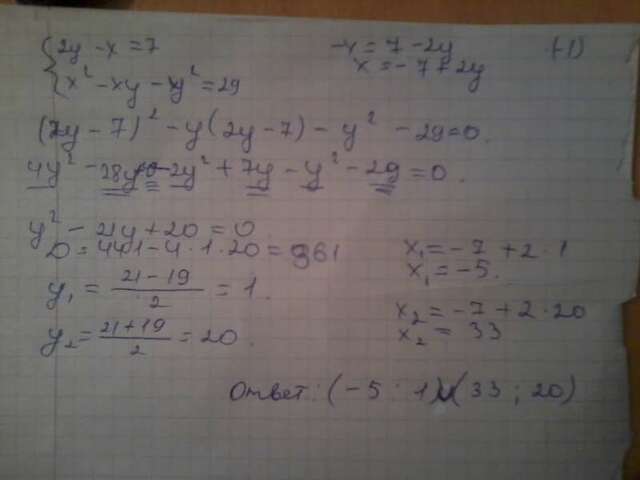 {2y - x = 7
{x² - xy - y² = 29
-x = 7 - 2y (-1)
x = -7 + 2y
(2y - 7)² - y(2y - 7) - y² - 29 = 0.
4y² - 28y + 49 - 2y² + 7y - y² - 29 = 0.
y² - 21y + 20 = 0
D = 441 - 4·1·20 = 361
y₁ = (21 - 19)/2 = 1.
y₂ = (21 + 19)/2 = 20.
x₁ = -7 + 2·1
x₁ = -5.
x₂ = -7 + 2·20
x₂ = 33
Ответ: (-5 ; 1) и (33 ; 20)